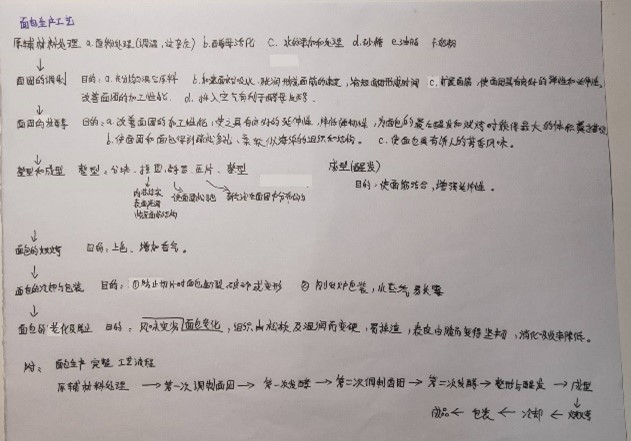 面包生产工艺
原辅材料处理 a.面粉处理(调温,过筛) b.酵母活化 c.水的添加和处理 d.砂糖 e.油脂 f.奶粉
↓
面团的调制 目的:a.充分均匀混合原料 b.加速面粉吸水、胀润形成面筋的速度,缩短面团形成时间 c.扩展面筋,使面团具有良好的弹性和延伸性,
改善面团的加工性能. d.拌入空气有利于酵母发酵.
↓
面团的发酵 目的:a.改善面团的加工性能,使之具有良好的延伸性,降低弹韧性,为面包的最后醒发和烘烤时获得最大的体积奠定基础
b.使面团和面包得到疏松多孔,柔软似海绵的组织和结构。 c.使面包具有诱人的芳香风味。
↓
整型和成型 整型:分块、搓圆、静置、压片、整型 成型(醒发)
目的:使面筋结合,增强延伸性。
内部结实
表面光滑
使面团松弛
↓
面包的烘烤 目的:上色、增加香气。
↓
面包的冷却与包装 目的:①防止切片时面包断裂、破碎或变形 ②刚出炉包装,水蒸气易长霉
↓
面包的老化及防止 目的:风味变劣 面包变化,组织由松软及湿润而变硬,易掉渣,表皮由脆而变得坚韧,消化吸收率降低。
附: 面包生产完整工艺流程
原辅材料处理 → 第一次调制面团 → 第一次发酵 → 第二次调制面团 → 第二次发酵 → 整形与醒发 → 成型
↓
成品 ← 包装 ← 冷却 ← 烘烤